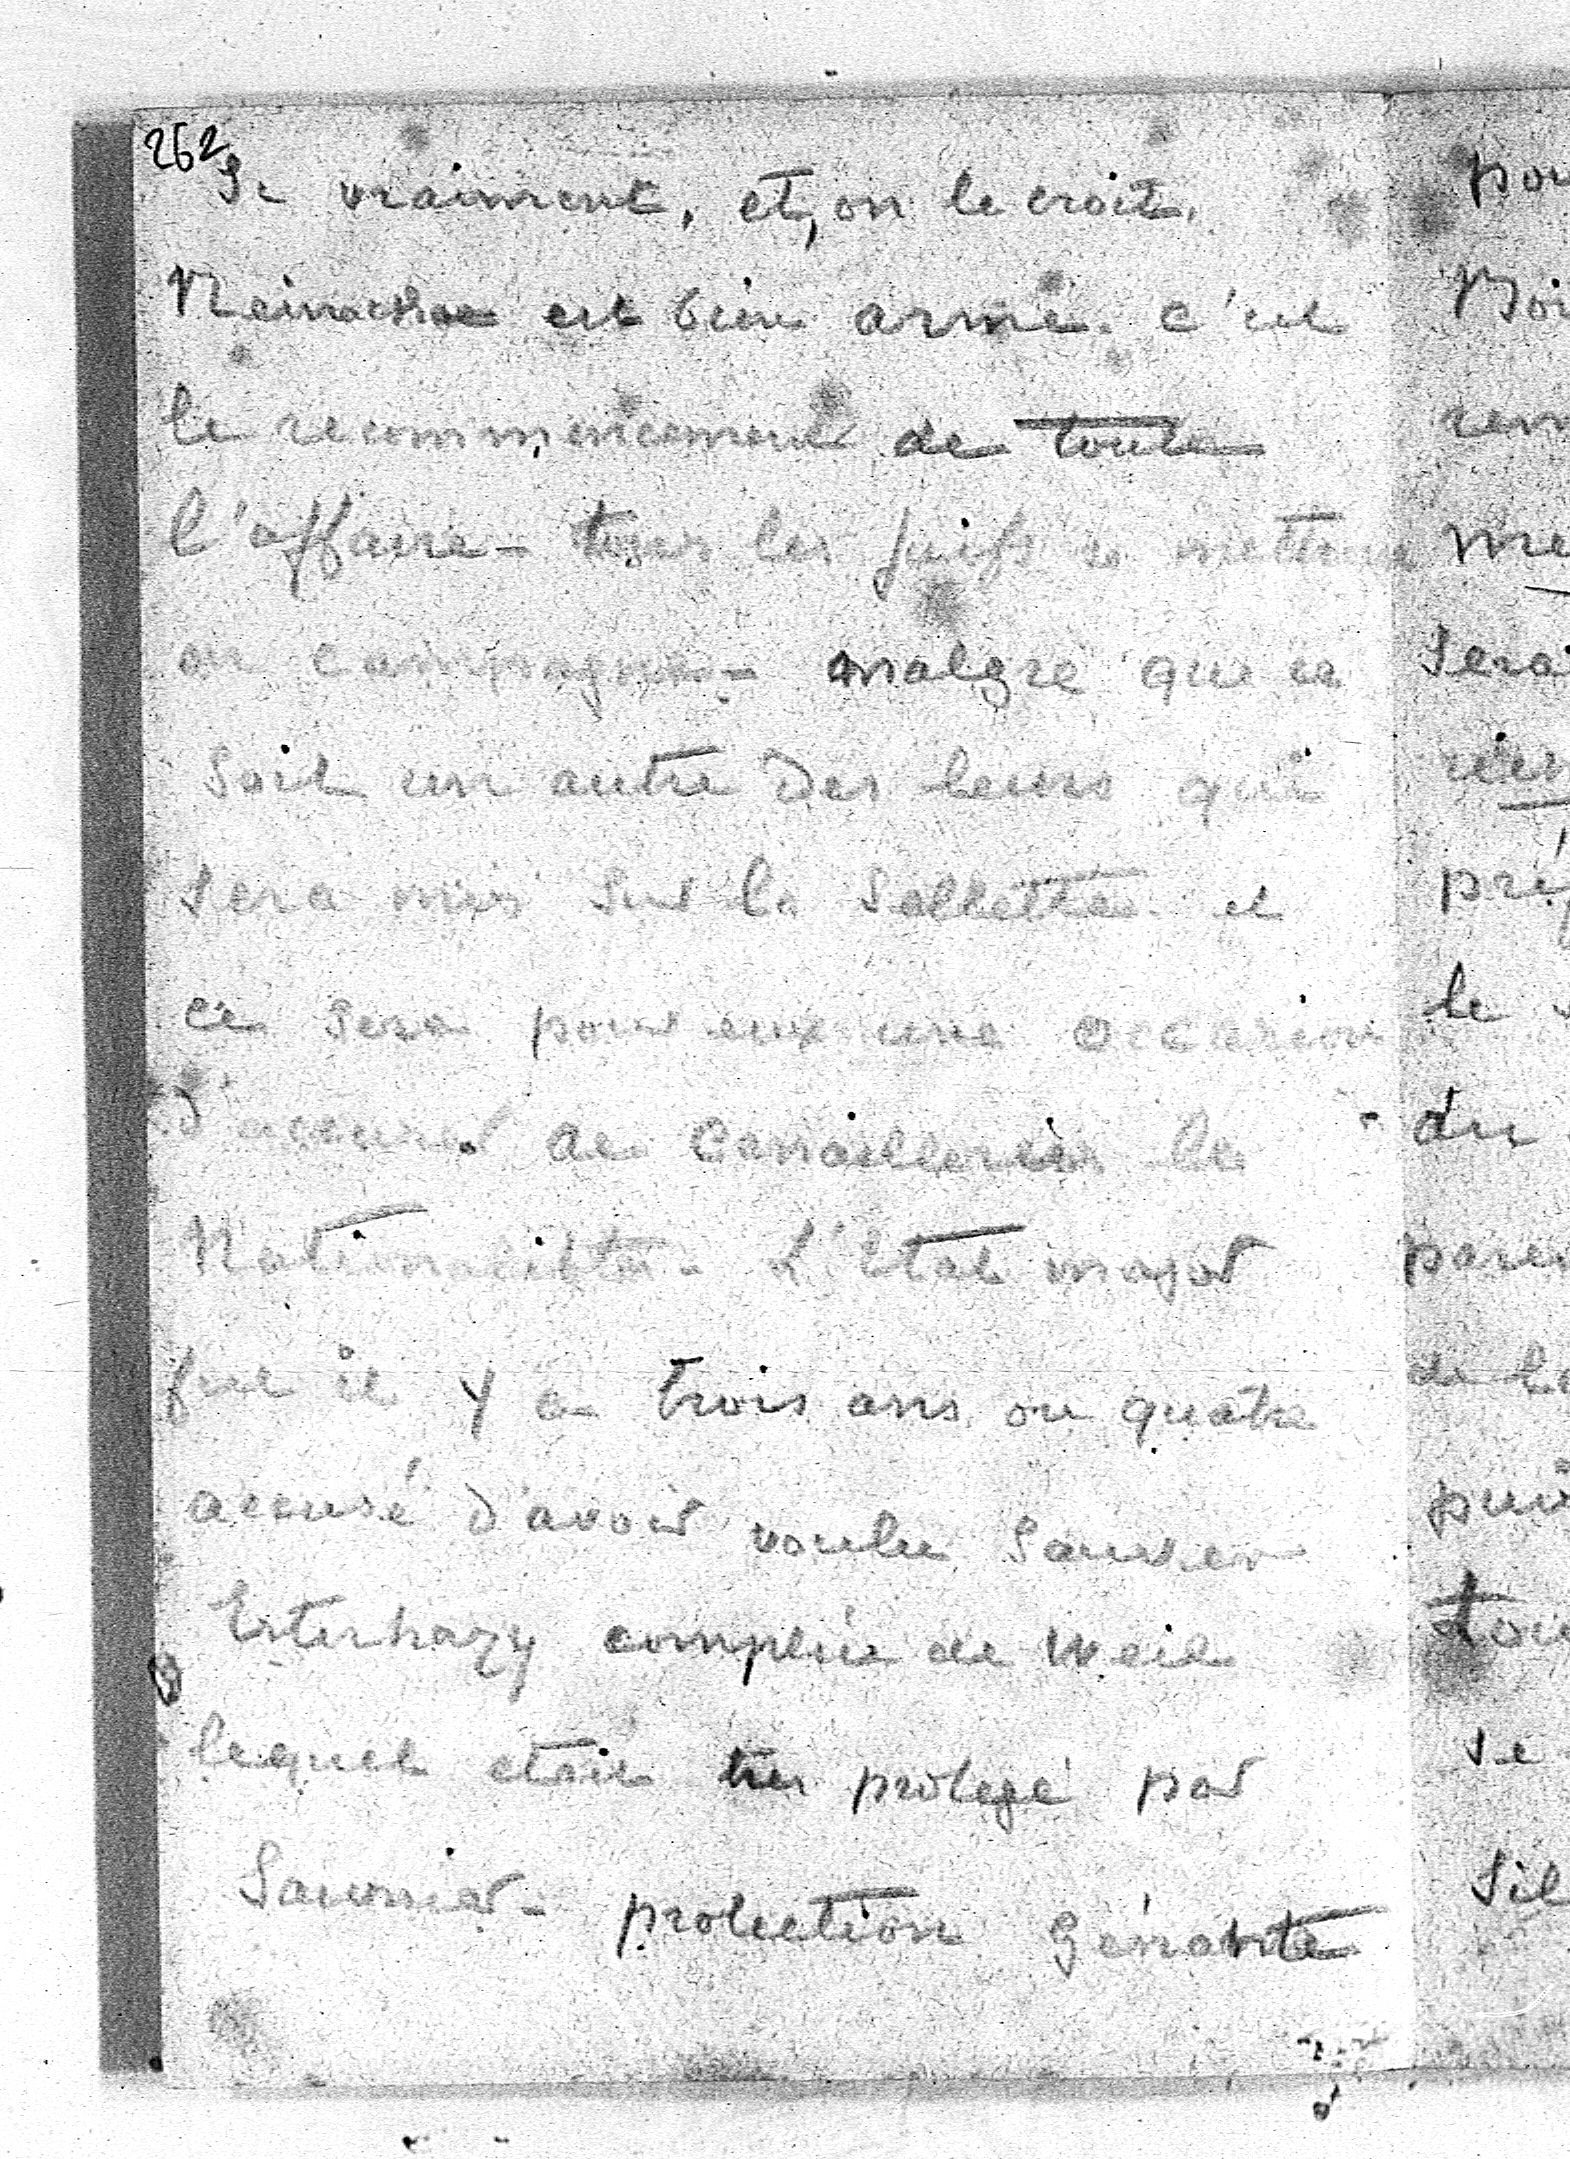 262
Si vraiment, et, on le croit,
Reinach est bien armé. c'est
le recommencement de toute
l'affaire - tous les juifs se mettront
en campagne - malgré que ce
soit un autre des leurs qui
sera mis sur la sellette. et
ce sera pour eux une occasion
d'accuser de canailleries les
Nationalistes. L'Etat major
fut il y a trois ans ou quatre
accusé d'avoir voulu sauver
Esterhazy complice de Weil
lequel etait tres protegé par
Saussier - protection gênante
pou
rem
me
sera
rien
le
du
de la
tou
se